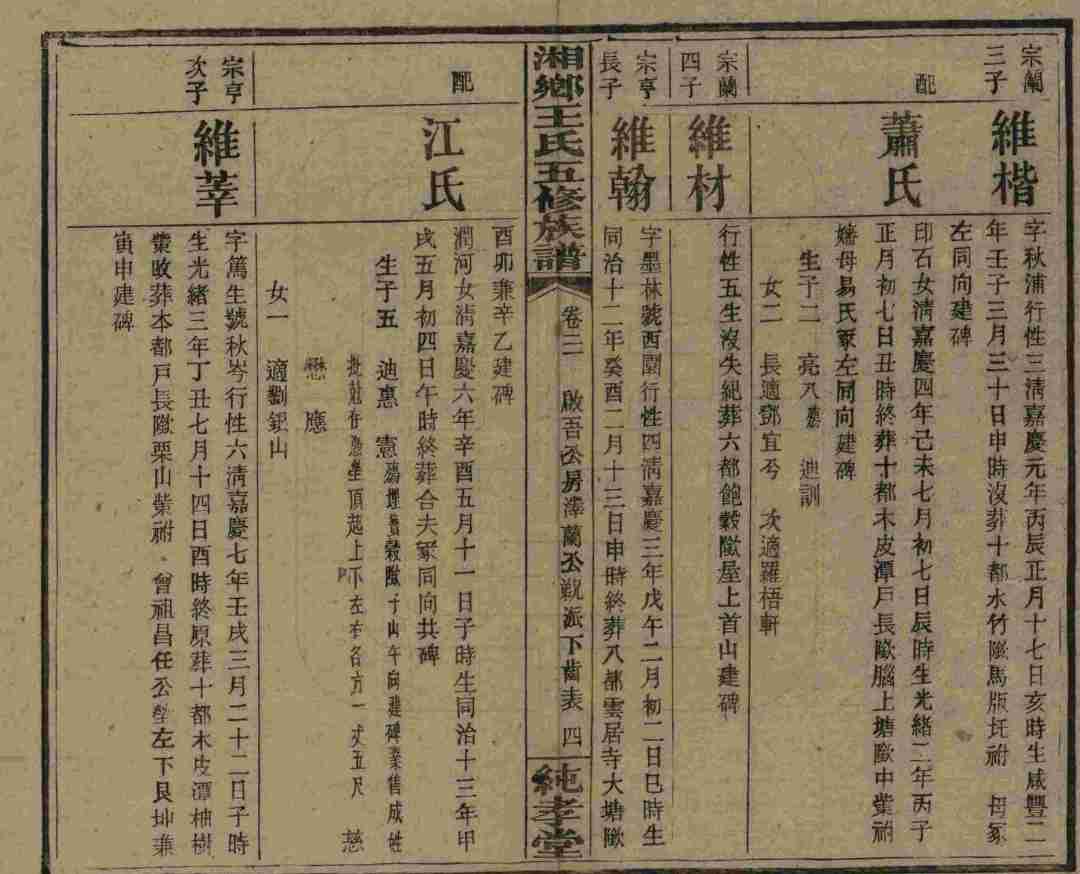 宗蘭
三子
維楷
字秋浦行性三淸嘉慶元年丙辰正月十七日亥時生咸豐二
年壬子三月三十日申時沒葬十都水竹㘭馬版圫祔 母冢
左同向建碑
配
蕭氏
印石女淸嘉慶四年己未七月初七日辰時生光緒二年丙子
正月初七日丑時終葬十都木皮潭戸長㘭腦上塘㘭中
母易氏冢左同向建碑
生子二 亮 迪訓
女二 長適鄧宜兮 次適羅梧軒
宗蘭
四子
維材
行性五生沒失紀葬六都飽穀㘭屋上首山建碑
宗亨
長子
維翰
字墨林號西園行性四淸嘉慶三年戊午二月初二日巳時生
同治十二年癸酉二月十三日申時終葬八都雲居寺大塘㘭
湘鄉王氏五修族譜
卷三 啟吾公房澤蘭公 派下齒表 四
純孝堂
酉卯兼辛乙建碑
配
江氏
潤河女淸嘉慶六年辛酉五月十一日子時生同治十三年甲
戌五月初四日午時終葬合夫冢同向共碑
生子五 迪惠 憲 子山午向建碑業售成姓
頂起上下左右各方一丈五尺 慈
懋 應
女一 適劉銀山
宗亨
次子
維莘
字篤生號秋岑行性六淸嘉慶七年壬戌三月二十二日子時
生光緒三年丁丑七月十四日酉時終原葬十都木皮潭柚樹
改葬本都戸長㘭栗山 祔 曾祖昌任公塋左下艮坤兼
寅申建碑